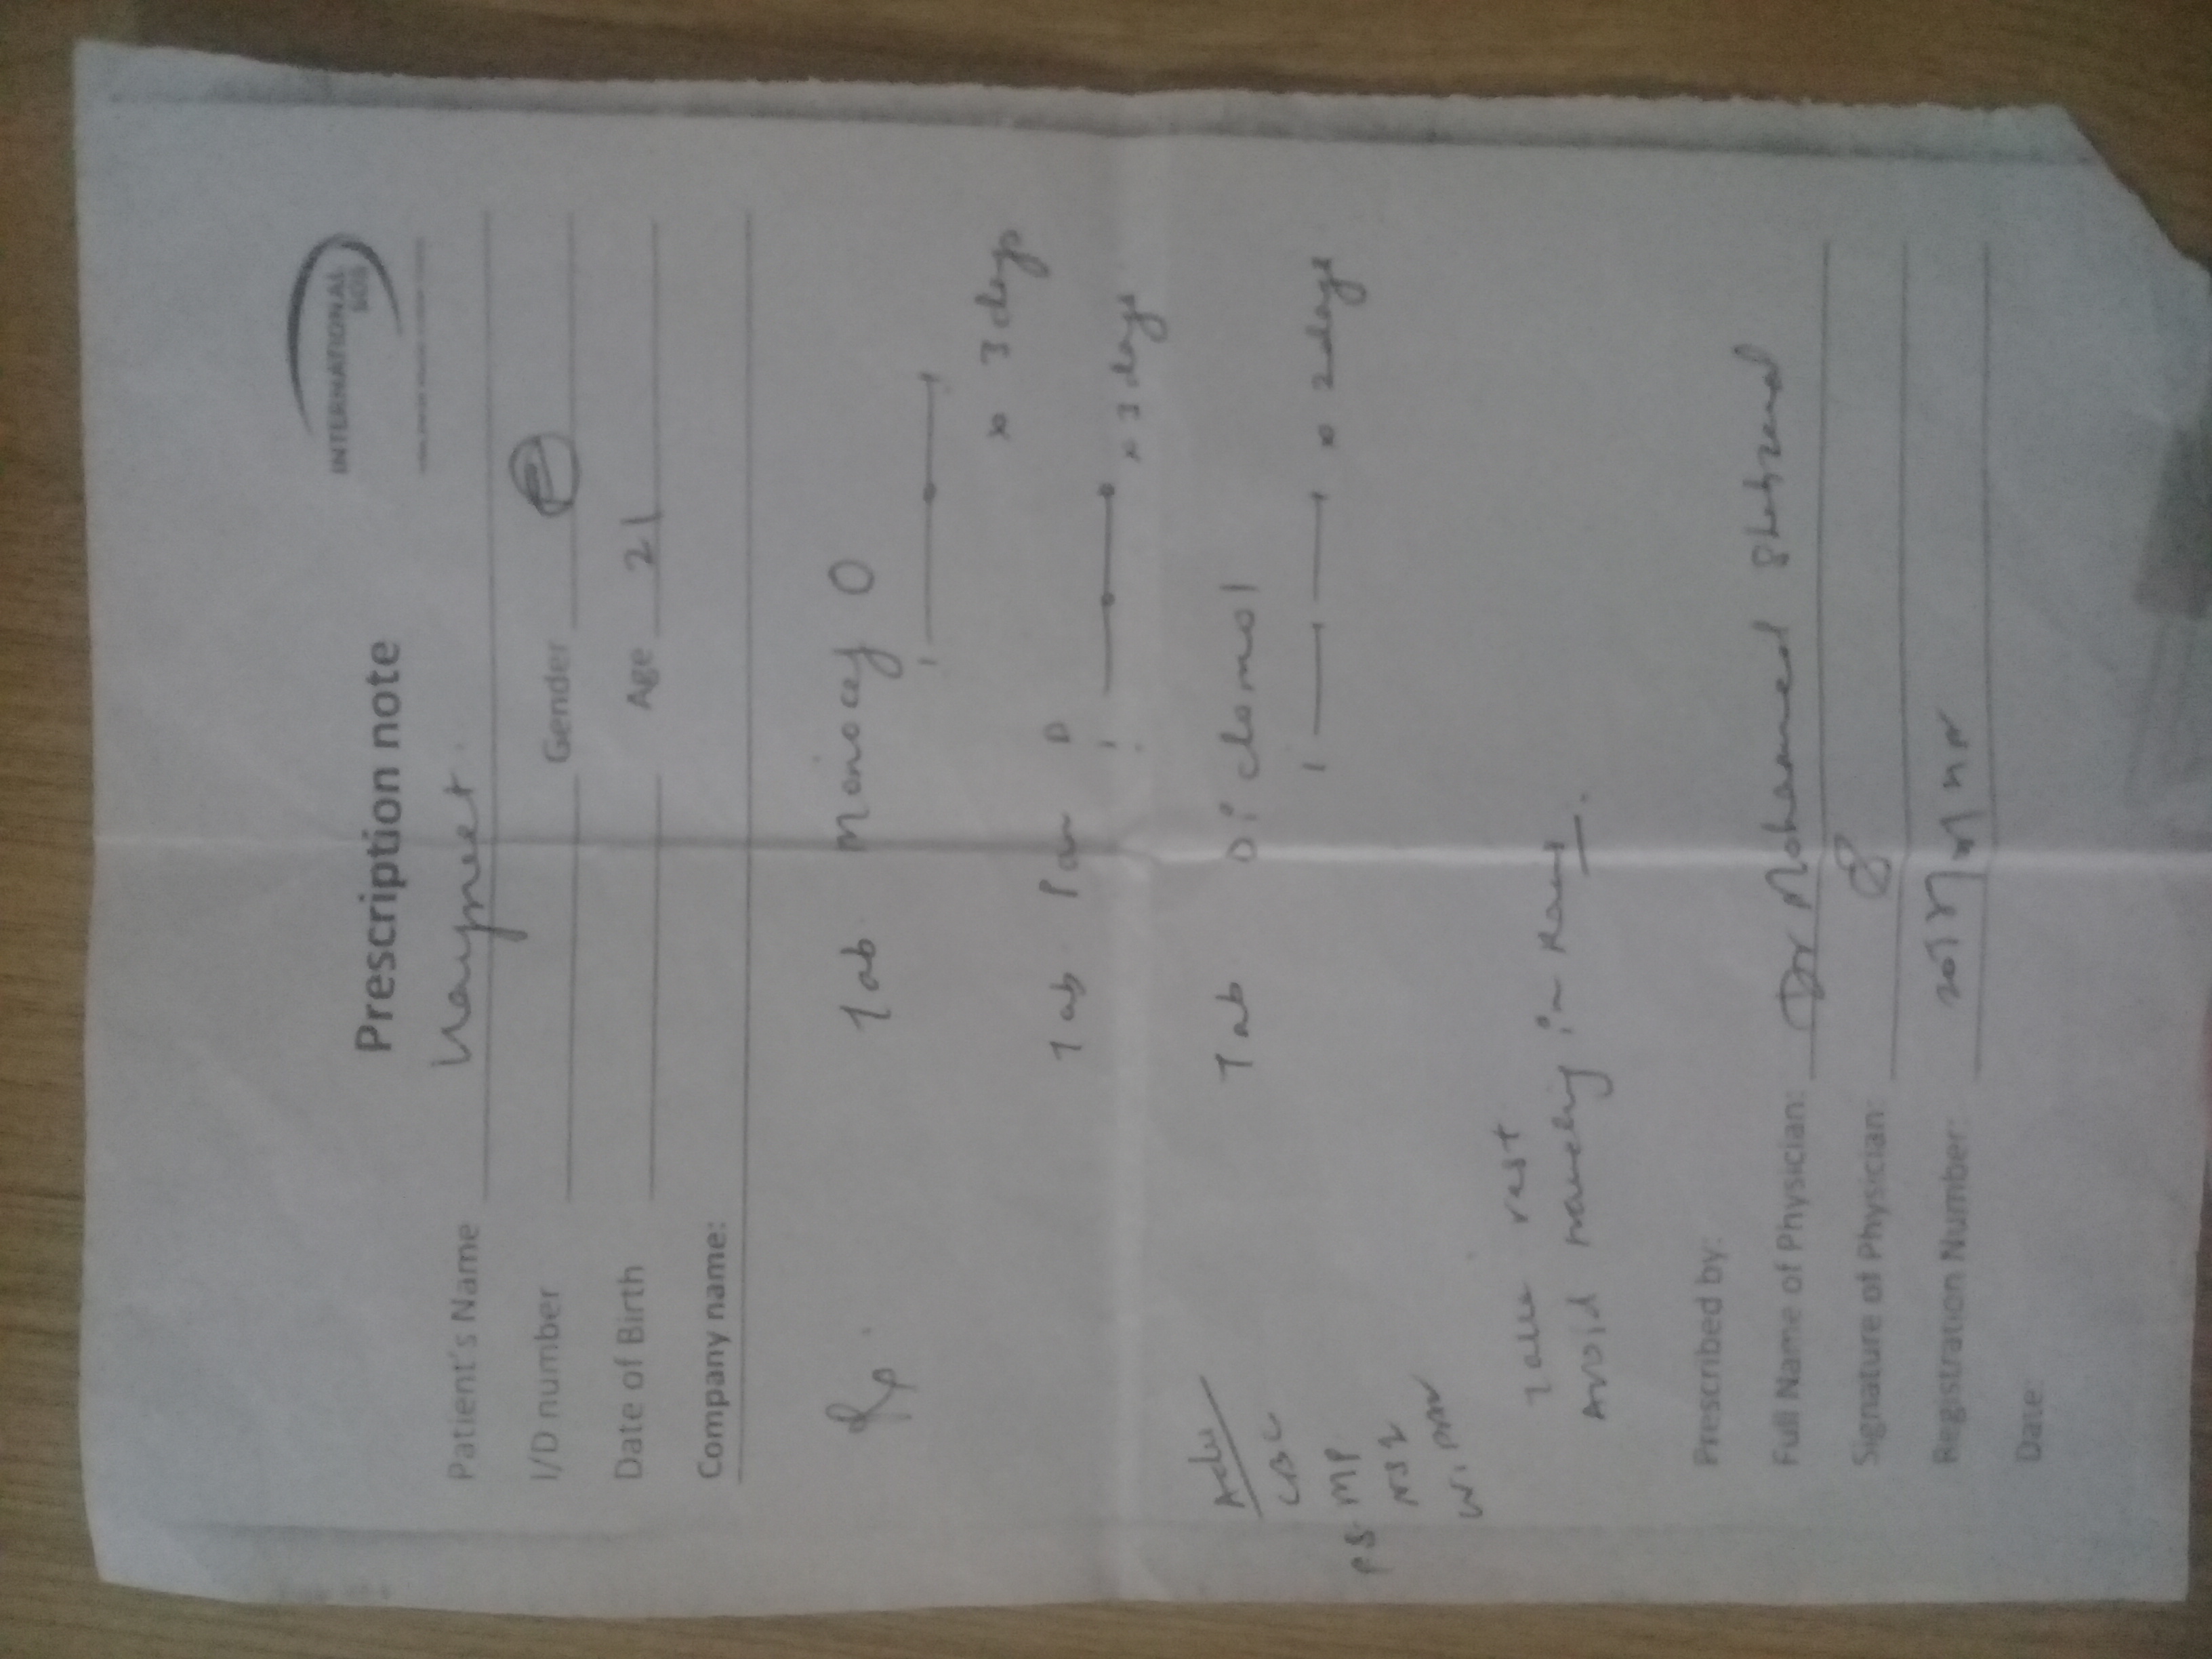 INTERNATIONAL
SOS
Prescription note
Patient's Name
I/D number Gender F
Date of Birth Age 21
Company name:
Rx Tab Monocef O
1 — 0 — 1
x 3 days
Tab Pan D
1 — 0 — 0 x 3 days
Adv
Tab Diclomol
CBC
1 — 1 — 1 x 2 days
PS MP
NS1
Take rest
Avoid traveling in
Prescribed by:
Full Name of Physician: Dr Mohammed
Signature of Physician:
Registration Number:
Date: